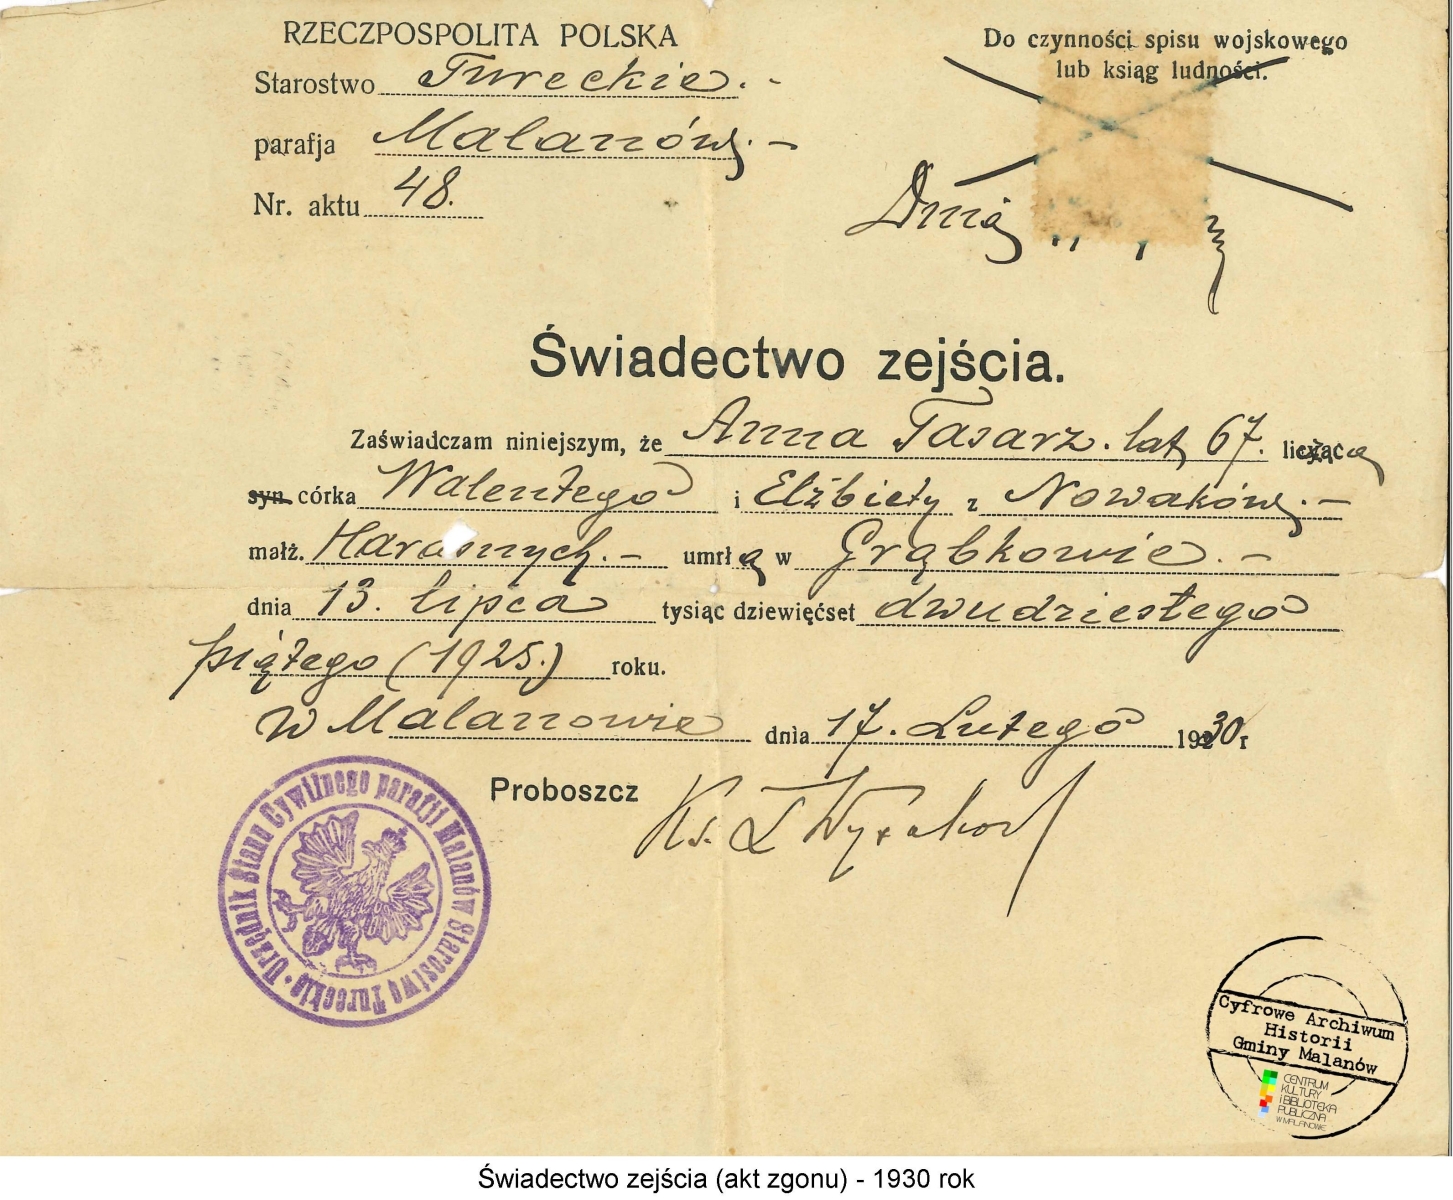 RZECZPOSPOLITA POLSKA
Starostwo Tureckie.-
parafja Malanów.-
Nr. aktu 48.
Do czynności spisu wojskowego
lub ksiąg ludności.
Dnia
Świadectwo zejścia.
Zaświadczam niniejszym, że Anna Tasarz. lat 67. licząca
syn. córka Walentego i Elżbiety z Nowaków.-
małż. umrła w Grąbkowie.-
dnia 13. lipca tysiąc dziewięćset dwudziestego
piątego (1925.) roku.
W Malanowie dnia 17. Lutego 1930 r
Proboszcz Ks.
Urzędnik Stanu Cywilnego parafji Malanów Starostwa Tureckie
Cyfrowe Archiwum
Historii
Gminy Malanów
CENTRUM
KULTURY
i BIBLIOTEKA
PUBLICZNA
W MALANOWIE
Świadectwo zejścia (akt zgonu) - 1930 rok